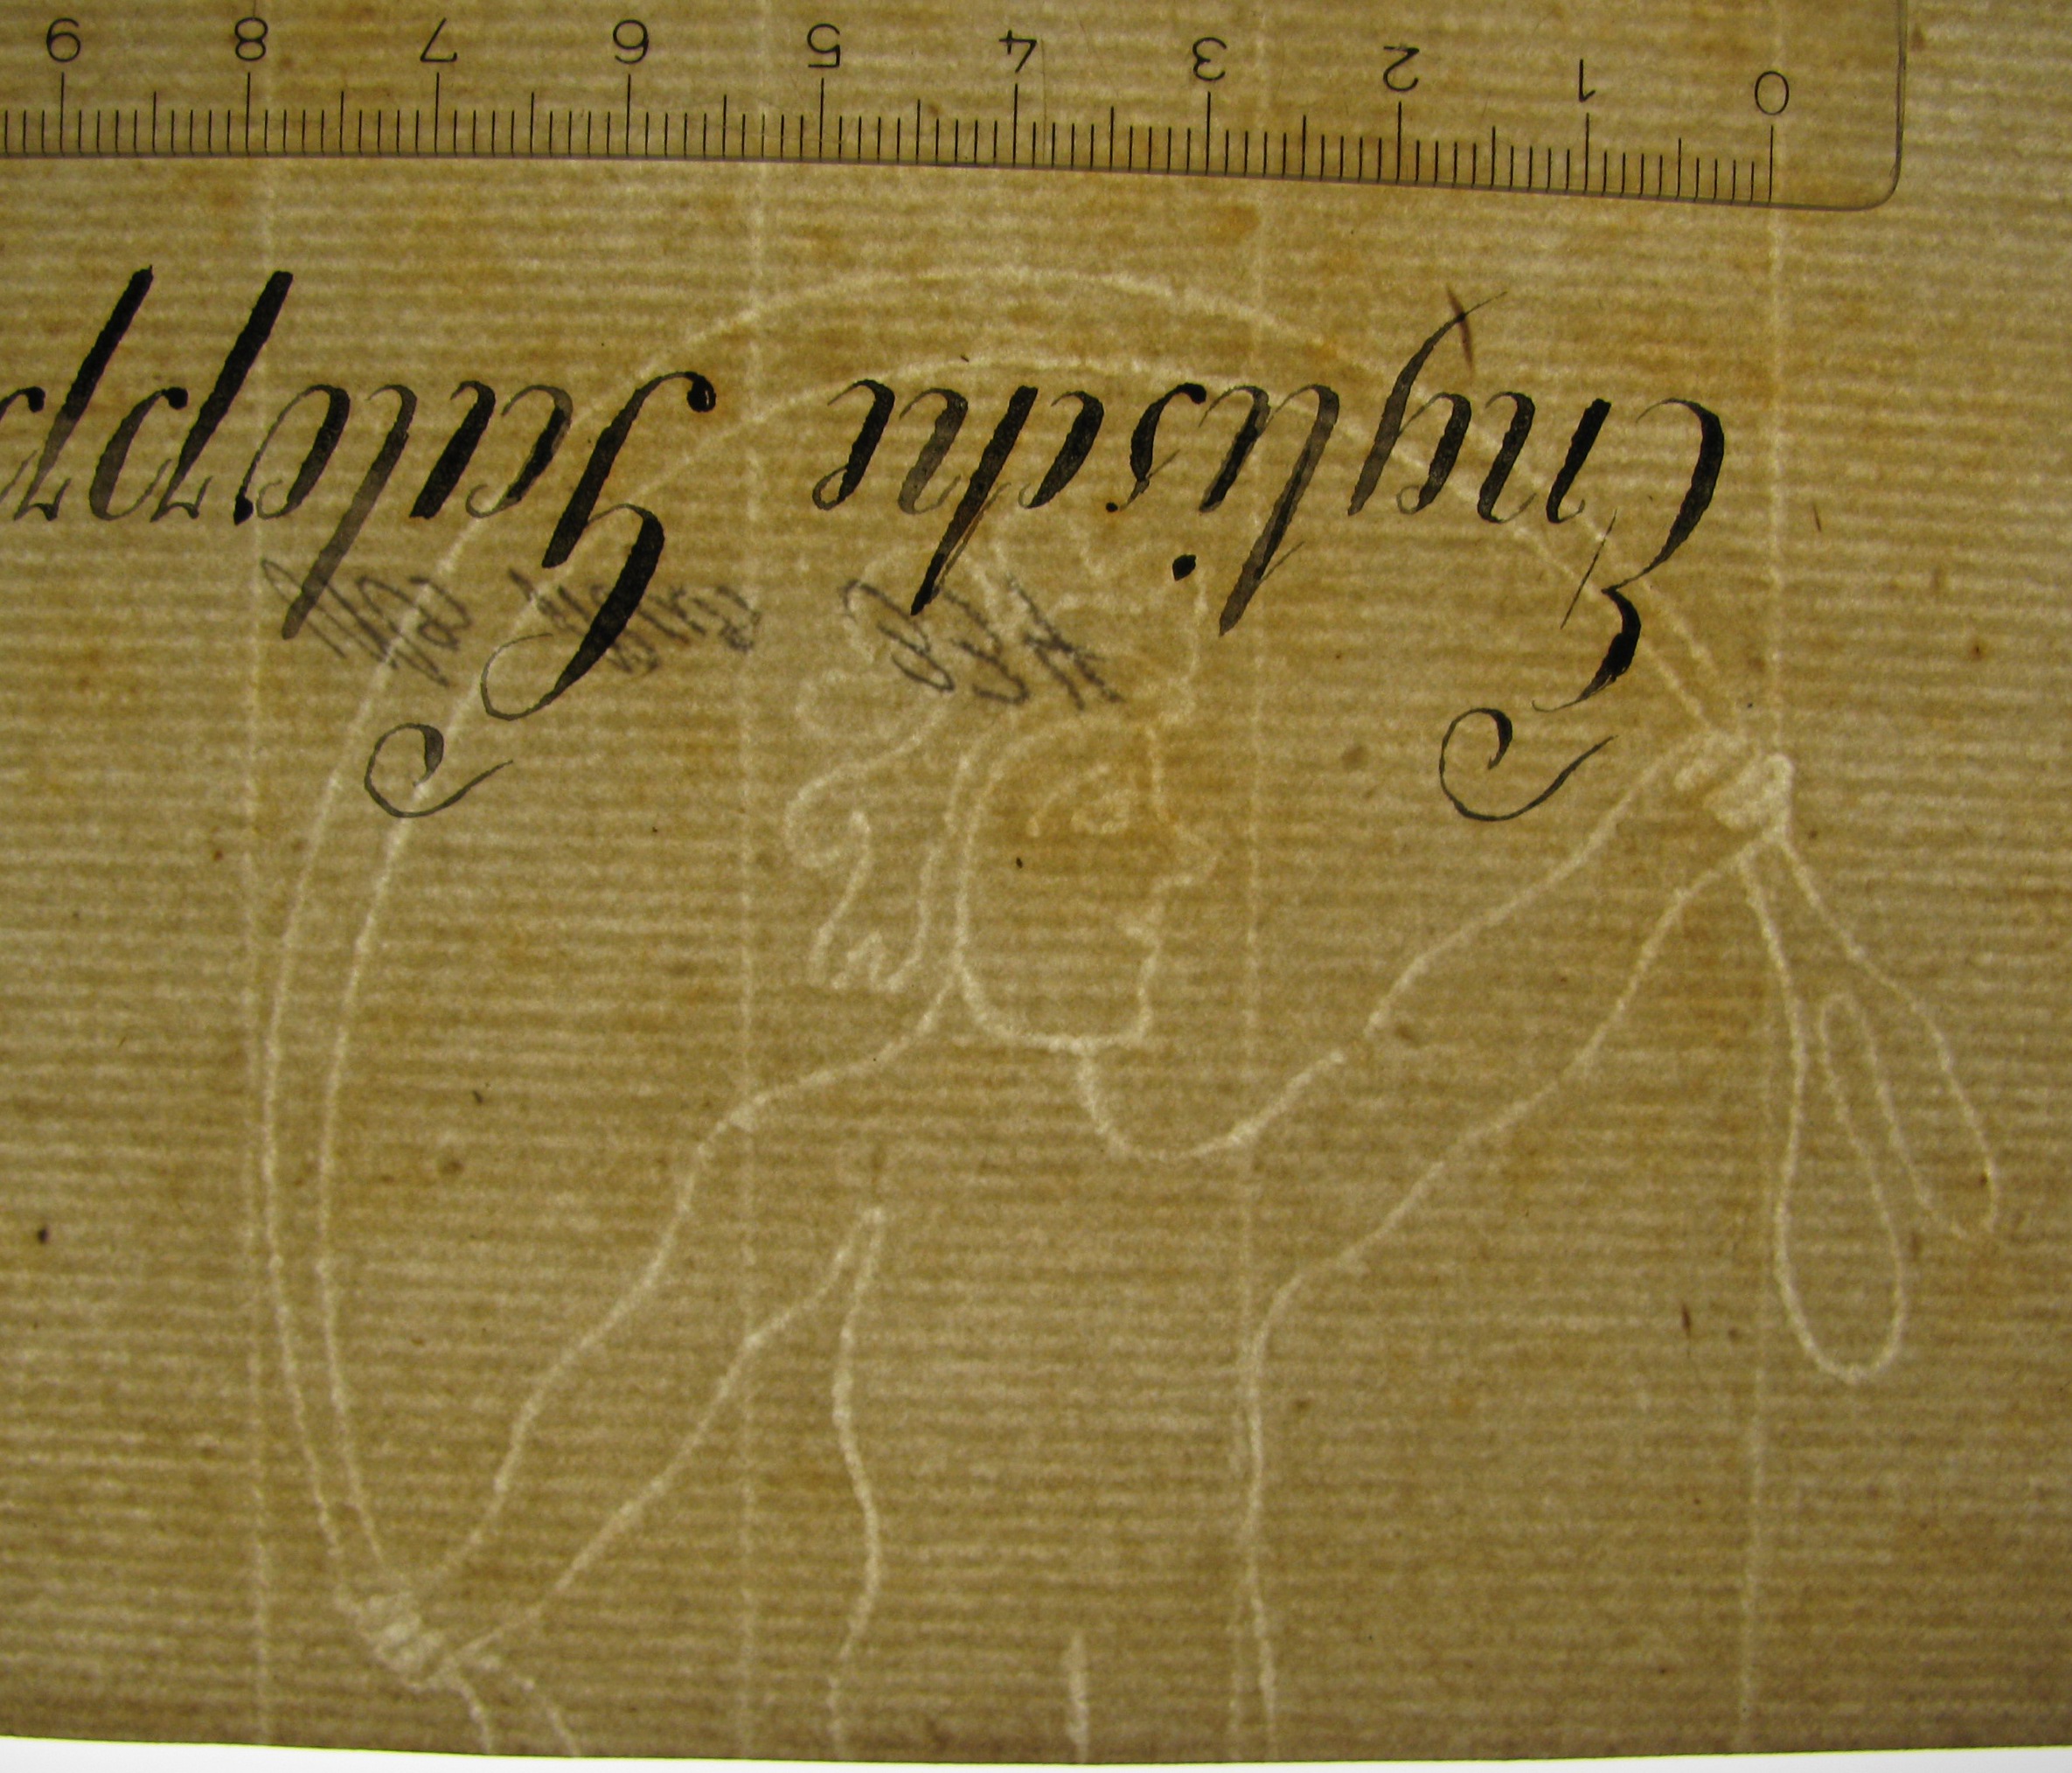 Englische Galopp
0 1 2 3 4 5 6 7 8 9